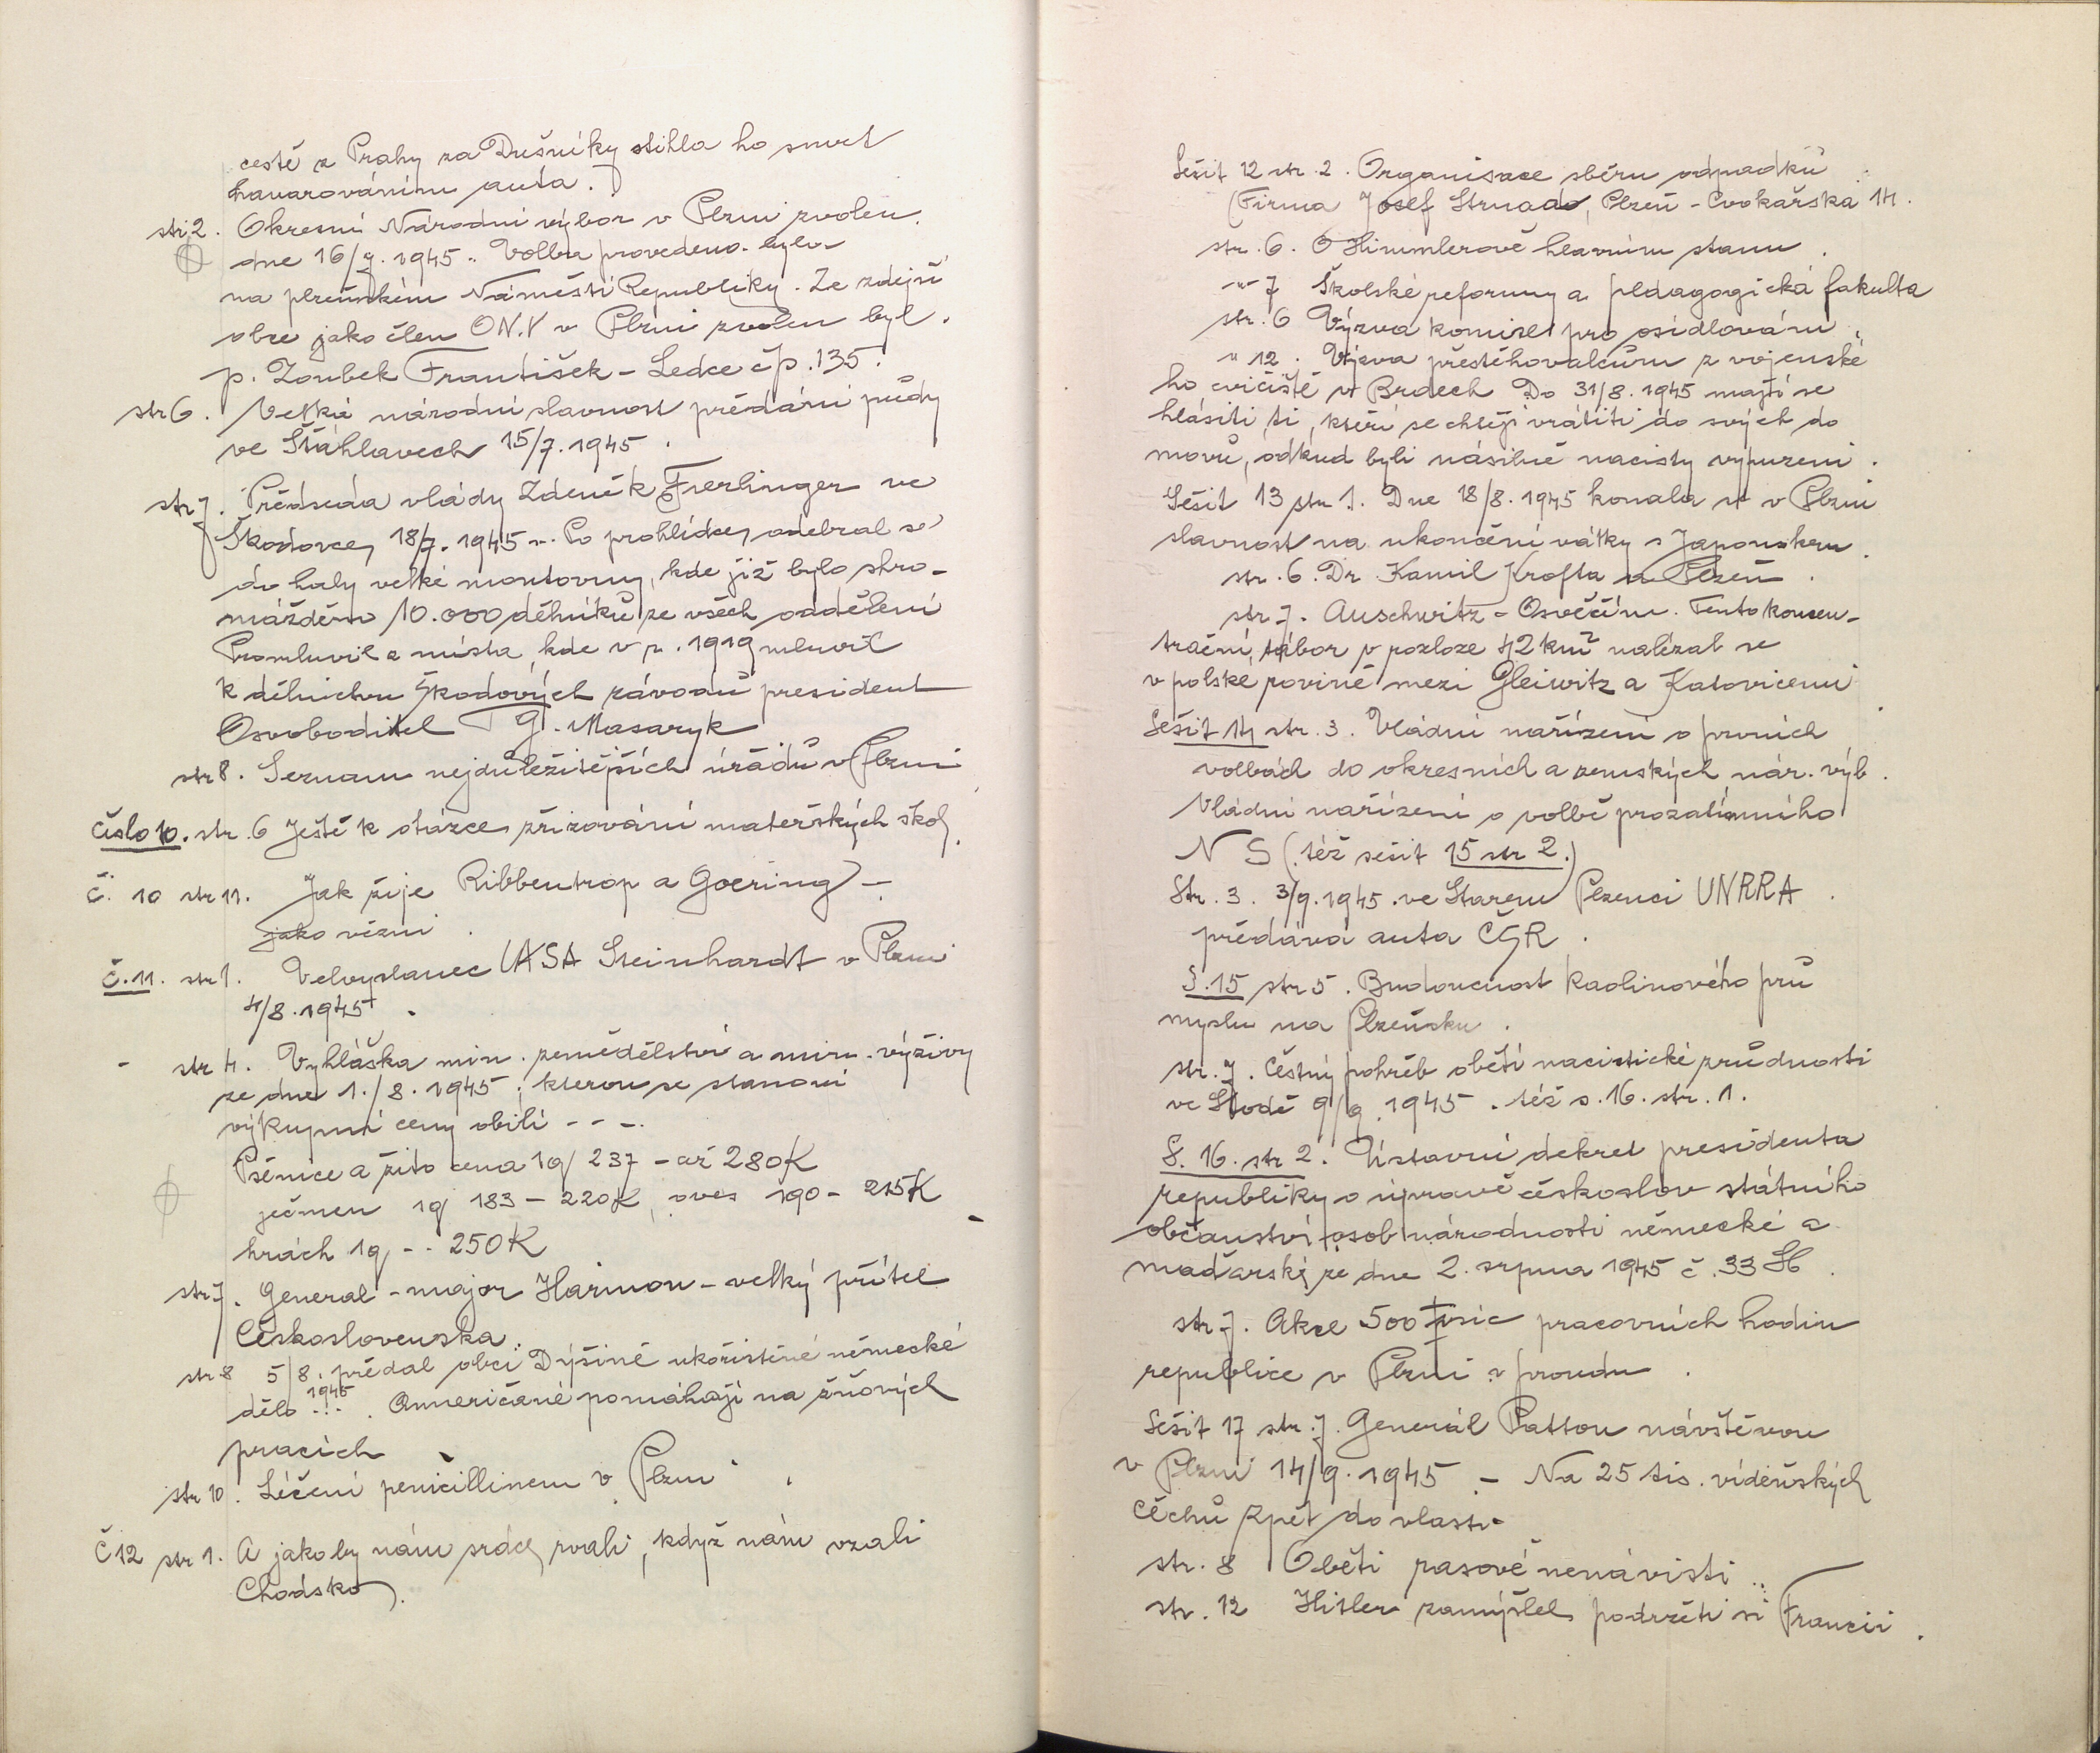 cestě z Prahy za Dušníky stihla ho smrt
havarováním auta.
str. 2. Okresní Národní výbor v Plzni zvolen
dne 16/7. 1945. Volba provedena byla
na plzeňském Náměstí Republiky. Ze zdejší
obce jako člen ON.V v Plzni zvolen byl
p. Zoubek František – Ledce čp. 135.
str 6. Velká národní slavnost předání půdy
ve Šťáhlavech 15/7. 1945.
str 7. Předseda vlády Zdeněk Fierlinger ve
Škodovce, 18/7. 1945. Po prohlídce, odebral se
do haly velké montovny, kde již bylo shro-
mážděno 10.000 dělníků ze všech oddělení
Promluvil z místa, kde v r. 1919 mluvil
k dělnictvu Škodových závodů president
Osvoboditel T G. Masaryk
str 8. Seznam nejdůležitějších úřadů v Plzni
Číslo 10. str. 6 Ještě k otázce zřizování mateřských škol.
Č. 10 str 11. Jak žije Ribbentrop a Goering –
jako vězni.
Č. 11. str 1. Velvyslanec USA Steinhardt v Plzni
4/8. 1945.
- str 4. Vyhláška min. zemědělství a min. výživy
ze dne 1./8. 1945, kterou se stanoví
výkupní ceny obilí - - -.
Pšenice a žito cena 1q 237 – až 280K
ječmen 1q 183 – 220K, oves 190 – 215K
hrách 1q - - 250K
str 7. General - major Harmon – velký přítel
Československa.
str 8 5/8. předal obci Dýšině ukořistěné německé
1945
dělo ... Američané pomáhají na žňových
pracích
str 10. Léčení penicillinem v Plzni.
Č 12 str 1. A jakoby nám srdce rvali, když nám vzali
Chodsko.
Sešit 12 str. 2. Organisace sběru odpadků
(Firma Josef Strnad, Plzeň - Cvokařská 14.
str. 6. O Himmlerově hlavním stanu.
-"- 7 Školské reformy a pedagogická fakulta
str. 6 Výzva komise pro osidlování.
" 12. Výzva přestěhovalcům z vojenské
ho cvičiště v Brdech Do 31/8. 1945 mají se
hlásiti, ti, kteří se chtějí vrátiti do svých do
movů, odkud byli násilně nacisty vypuzeni.
Sešit 13 str 1. Dne 18/8. 1945 konala se v Plzni
slavnost na ukončení války s Japonskem.
str. 6. Dr. Kamil Krofta a Plzeň.
str. 7. Auschwitz – Osvěčim. Tento koncen-
trační, tábor v rozloze 42 km² nalézal se
v polské rovině mezi Gleiwitz a Katovicemi
Sešit 14 str. 3. Vládní nařízení o prvních
volbách do okresních a zemských nár. výb.
Vládní nařízení o volbě prozatímního
N S (též sešit 15 str 2.)
Str. 3. 3/9. 1945. ve Starém Plzenci UNRRA
předává auta ČSR.
S. 15 str 5. Budoucnost kaolinového prů
myslu na Plzeňsku.
str. 7. Čestný pohřeb obětí nacistické zrůdnosti
ve Stodě 9/9 1945. též s. 16. str. 1.
S. 16. str 2. Ústavní dekret presidenta
republiky o úpravě českoslov státního
občanství osob národnosti německé a
maďarské, ze dne 2. srpna 1945 č. 33 Sb.
str. 7. Akce 500 tisíc pracovních hodin
republice v Plzni v proudu.
Sešit 17 str. 7. Generál Patton návštěvou
v Plzni 14/9. 1945. – Na 25 tis. vídeňských
Čechů zpět do vlasti.
str. 8 Oběti rasové nenávisti..
str. 12 Hitler zamýšlel podržeti si Francii.